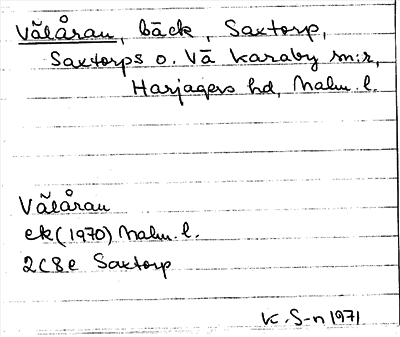 Vālåran, bäck, Saxtorp,
Saxtorps o. Vā Karaby sn:r,
Harjagers hd, Malm. l.
Vālåran
ek (1970) Malm. l.
2C8e Saxtorp
K. S-n 1971